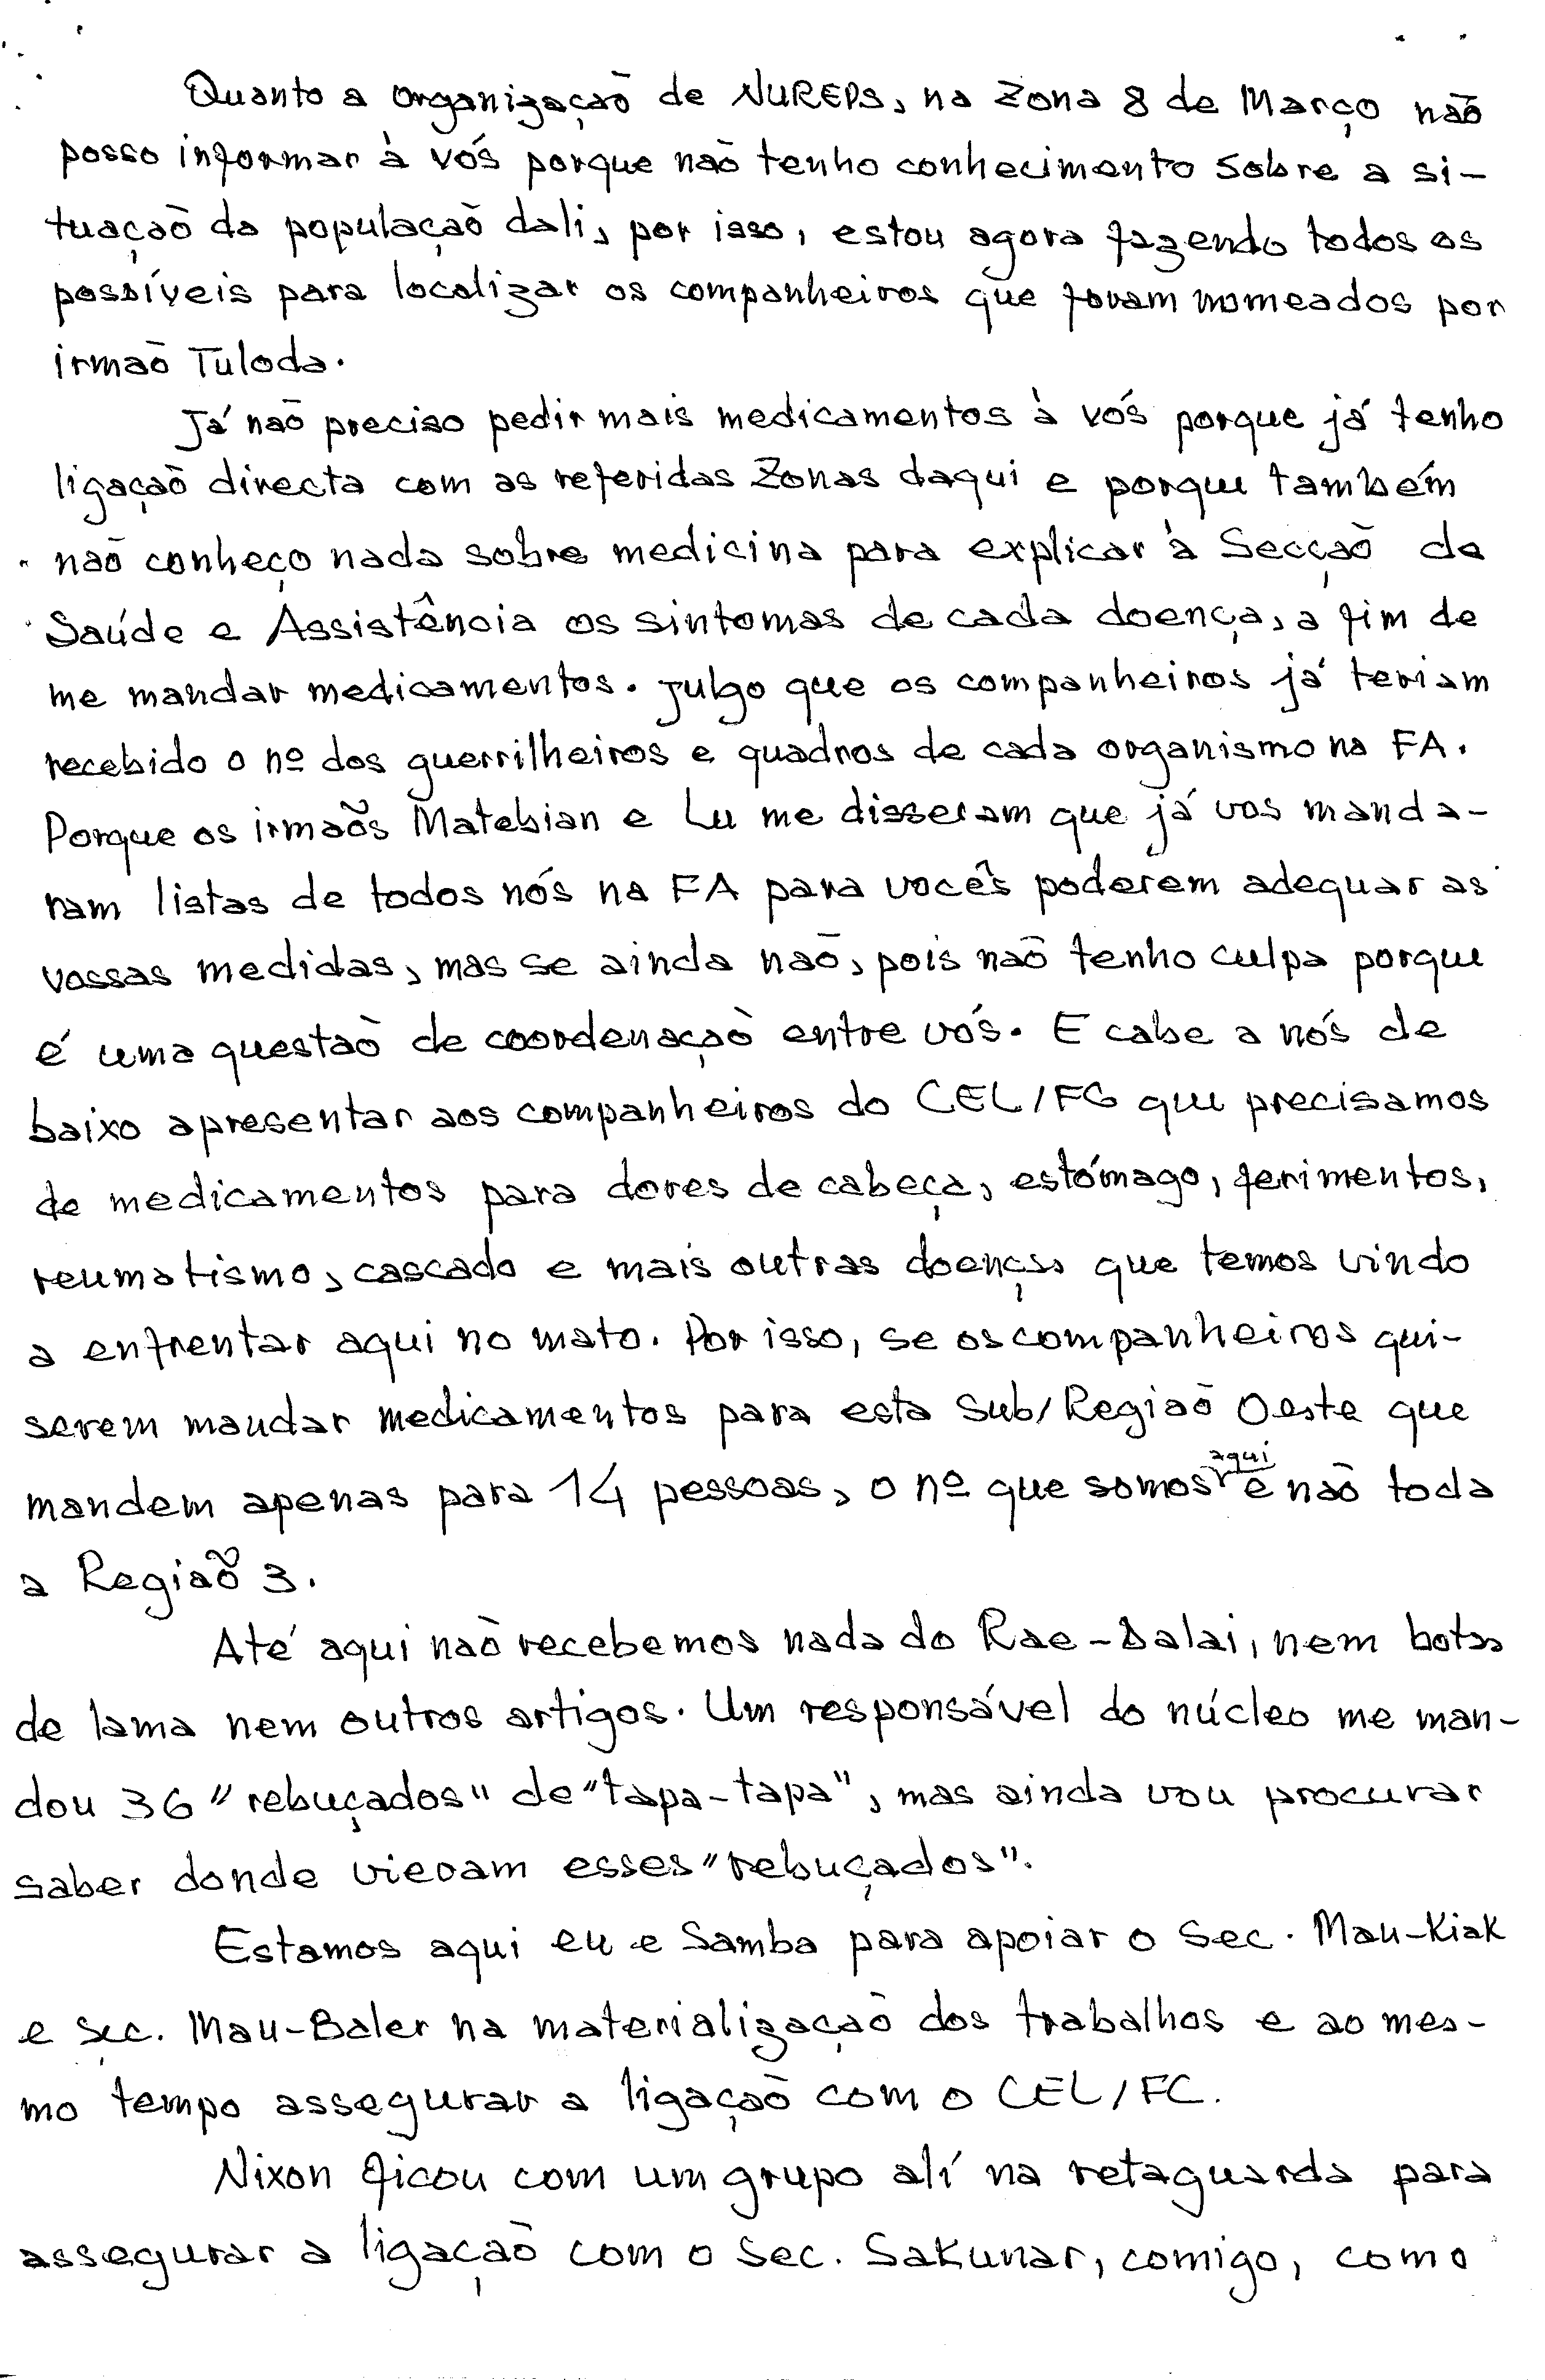 Quanto a organização de NUREPS, na Zona 8 de Março não
posso informar à vós porque não tenho conhecimento sobre a si-
tuação da população dali, por isso, estou agora fazendo todos os
possíveis para localizar os companheiros que foram nomeados por
irmão Tuloda.
Já não preciso pedir mais medicamentos à vós porque já tenho
ligação directa com as referidas Zonas daqui e porque também
não conheço nada sobre medicina para explicar à Secção de
Saúde e Assistência os sintomas de cada doença, a fim de
me mandar medicamentos. Julgo que os companheiros já teriam
recebido o nº dos guerrilheiros e quadros de cada organismo na FA.
Porque os irmãos Matebian e Lu me disseram que já vos manda-
ram listas de todos nós na FA para vocês poderem adequar as
vossas medidas, mas se ainda não, pois não tenho culpa porque
é uma questão de coordenação entre vós. E cabe a nós de
baixo apresentar aos companheiros do CEL/FC que precisamos
de medicamentos para dores de cabeça, estómago, ferimentos,
reumatismo, cascado e mais outras doenças que temos vindo
a enfrentar aqui no mato. Por isso, se os companheiros qui-
serem mandar medicamentos para esta Sub/Região Oeste que
mandem apenas para 14 pessoas, o nº que somos aqui e não toda
a Região 3.
Até aqui não recebemos nada do Rae-Dalai, nem botas
de lama nem outros artigos. Um responsável do núcleo me man-
dou 36 "rebuçados" de "tapa-tapa", mas ainda vou procurar
saber donde vieram esses "rebuçados".
Estamos aqui eu e Samba para apoiar o Sec. Mau-Kiak
e sec. Mau-Baler na materialização dos trabalhos e ao mes-
mo tempo assegurar a ligação com o CEL/FC.
Nixon ficou com um grupo alí na retaguarda para
assegurar a ligação com o Sec. Sakunar, comigo, como